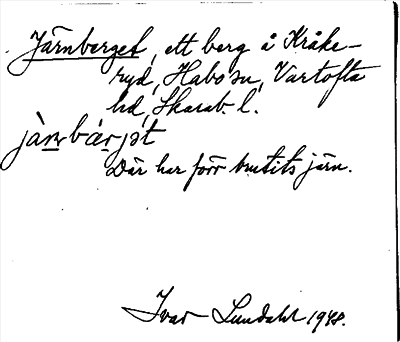 Järnberget, ett berg å Kråke-
ryd, Habo sn, Vartofta
hd, Skarab. l.
jà̀nbæ̀rjət
Där har förr brutits järn.
Ivar Lundahl 1948.